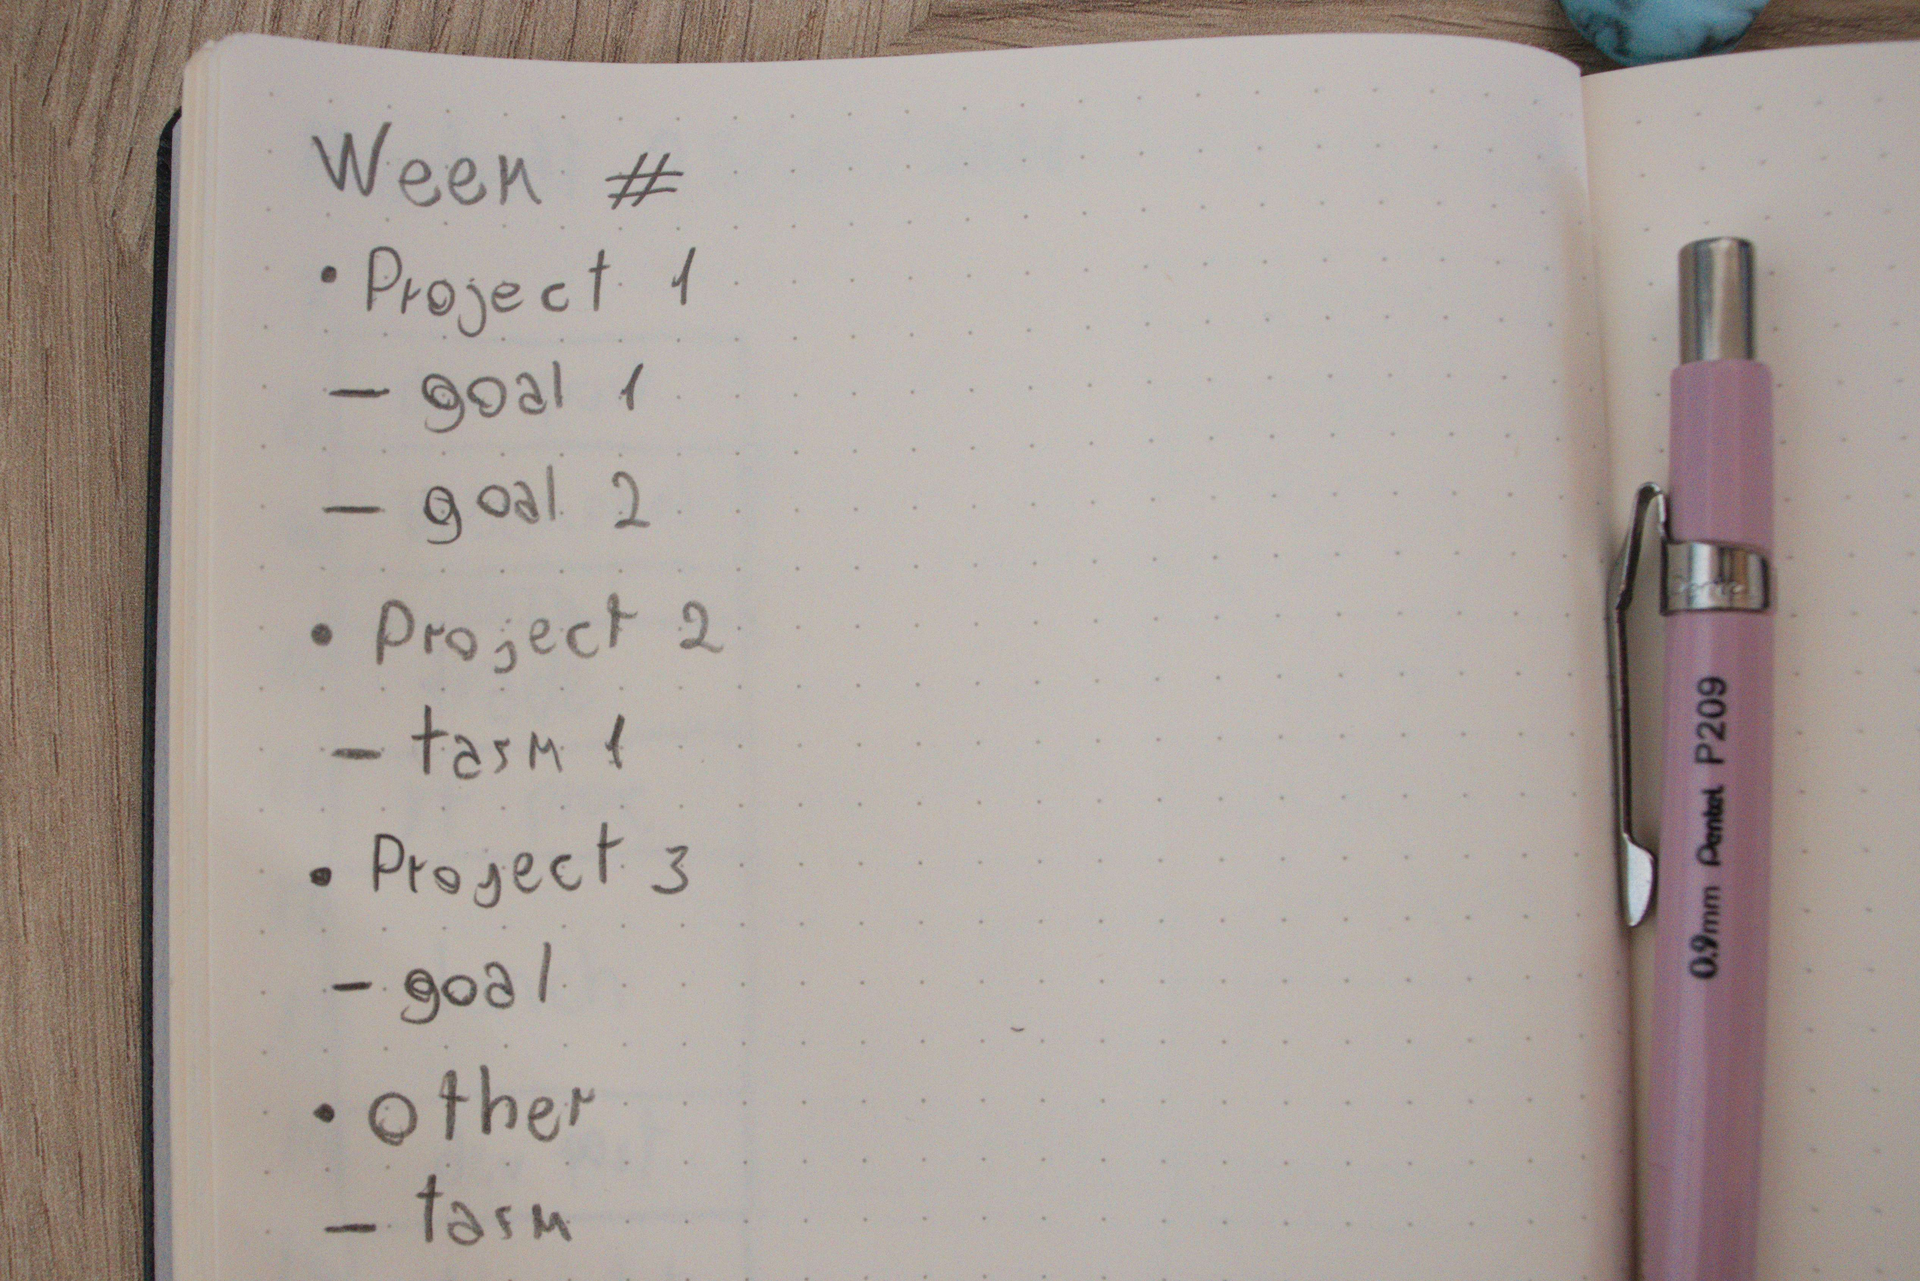 Week #
• Project 1
— goal 1
— goal 2
• Project 2
— task 1
• Project 3
— goal
• other
— task
0.9mm Pentel P209